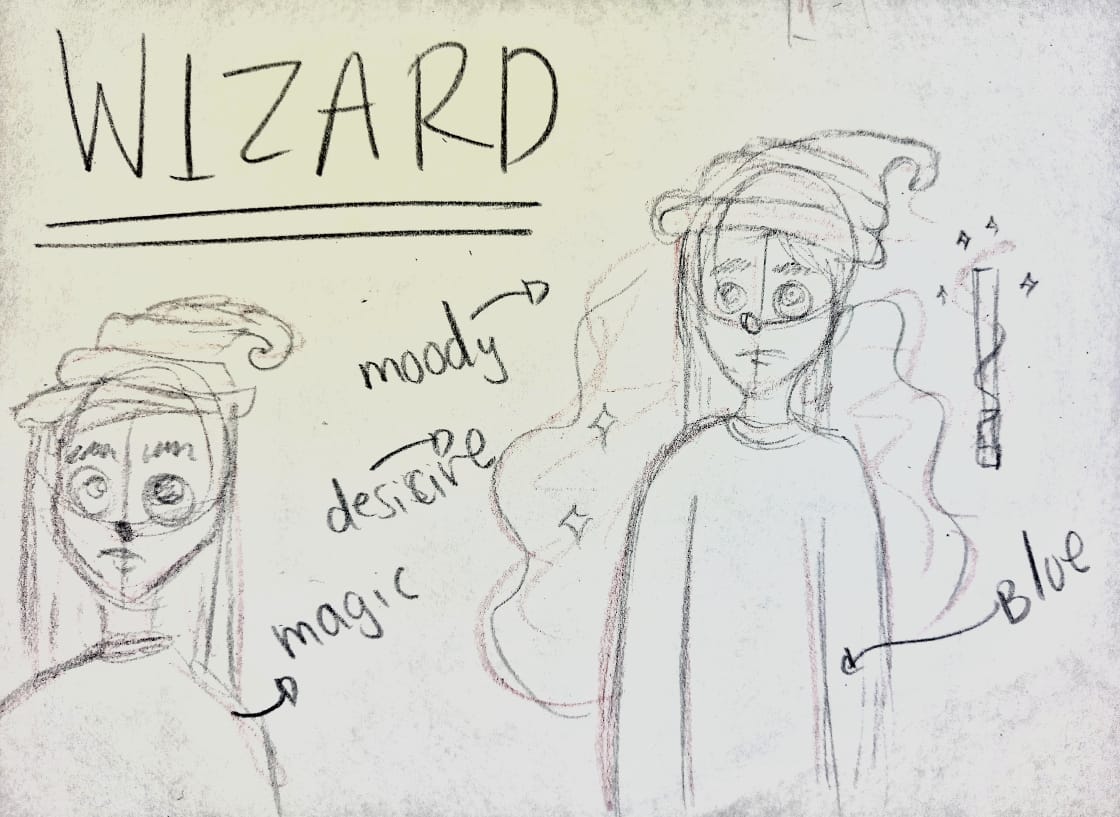 WIZARD
moody
desicire
magic
Blue